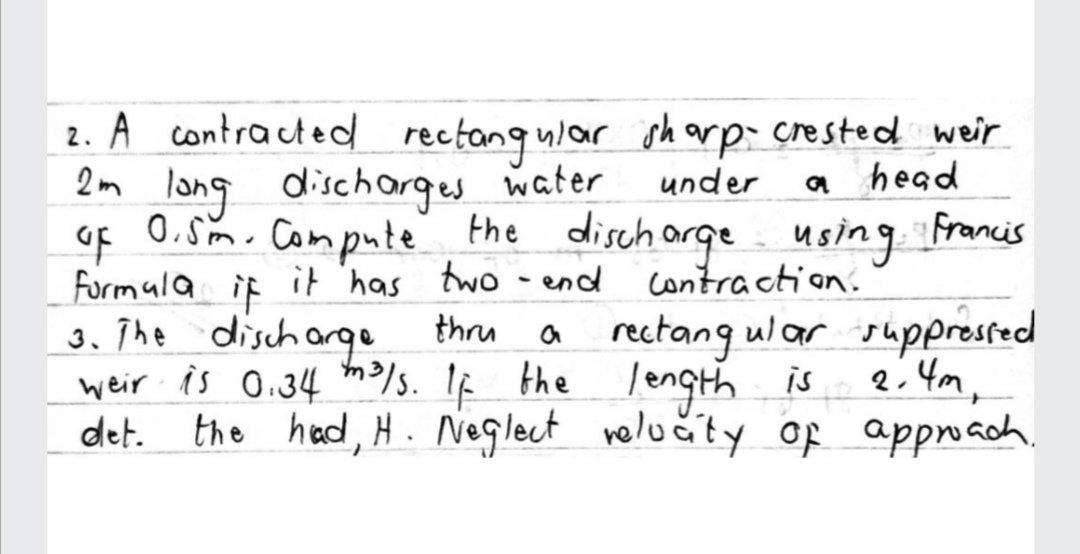 2. A contracted rectangular sharp-crested weir
2m long discharges water under a head
of 0.5m. Compute the discharge using Francis
Formula if it has two-end contraction.
3. The discharge thru a rectangular suppressed
weir is 0.34 m³/s. If the length is 2.4m,
det. the head, H. Neglect velocity of approach.